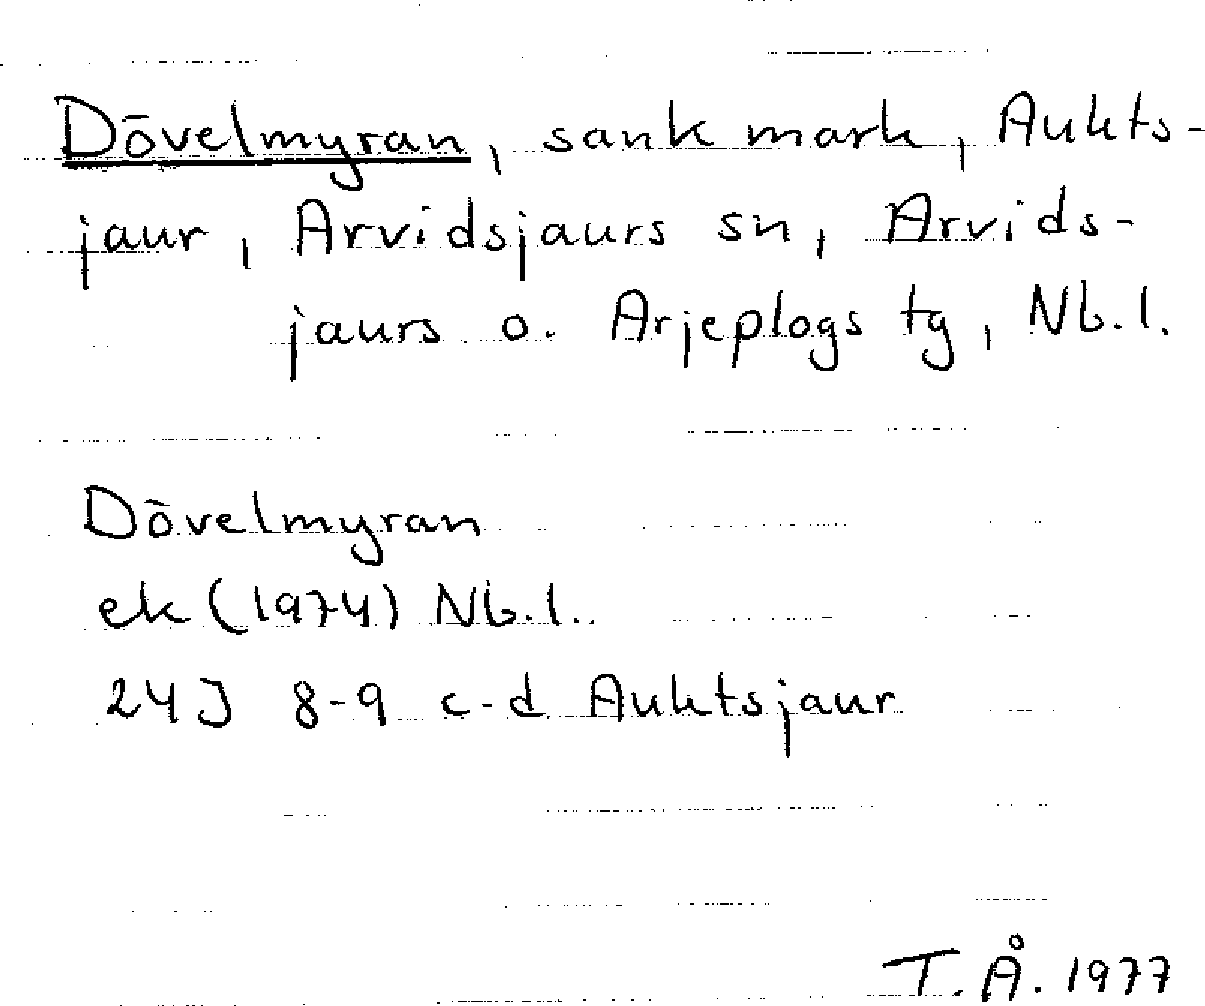 Dövelmyran, sank mark, Aukts-
jaur, Arvidsjaurs sn, Arvids-
jaurs o. Arjeplogs tg, Nb.l.
Dövelmyran
ek (1974) Nb.l.
24J 8-9 c-d Auktsjaur
T.Å. 1977